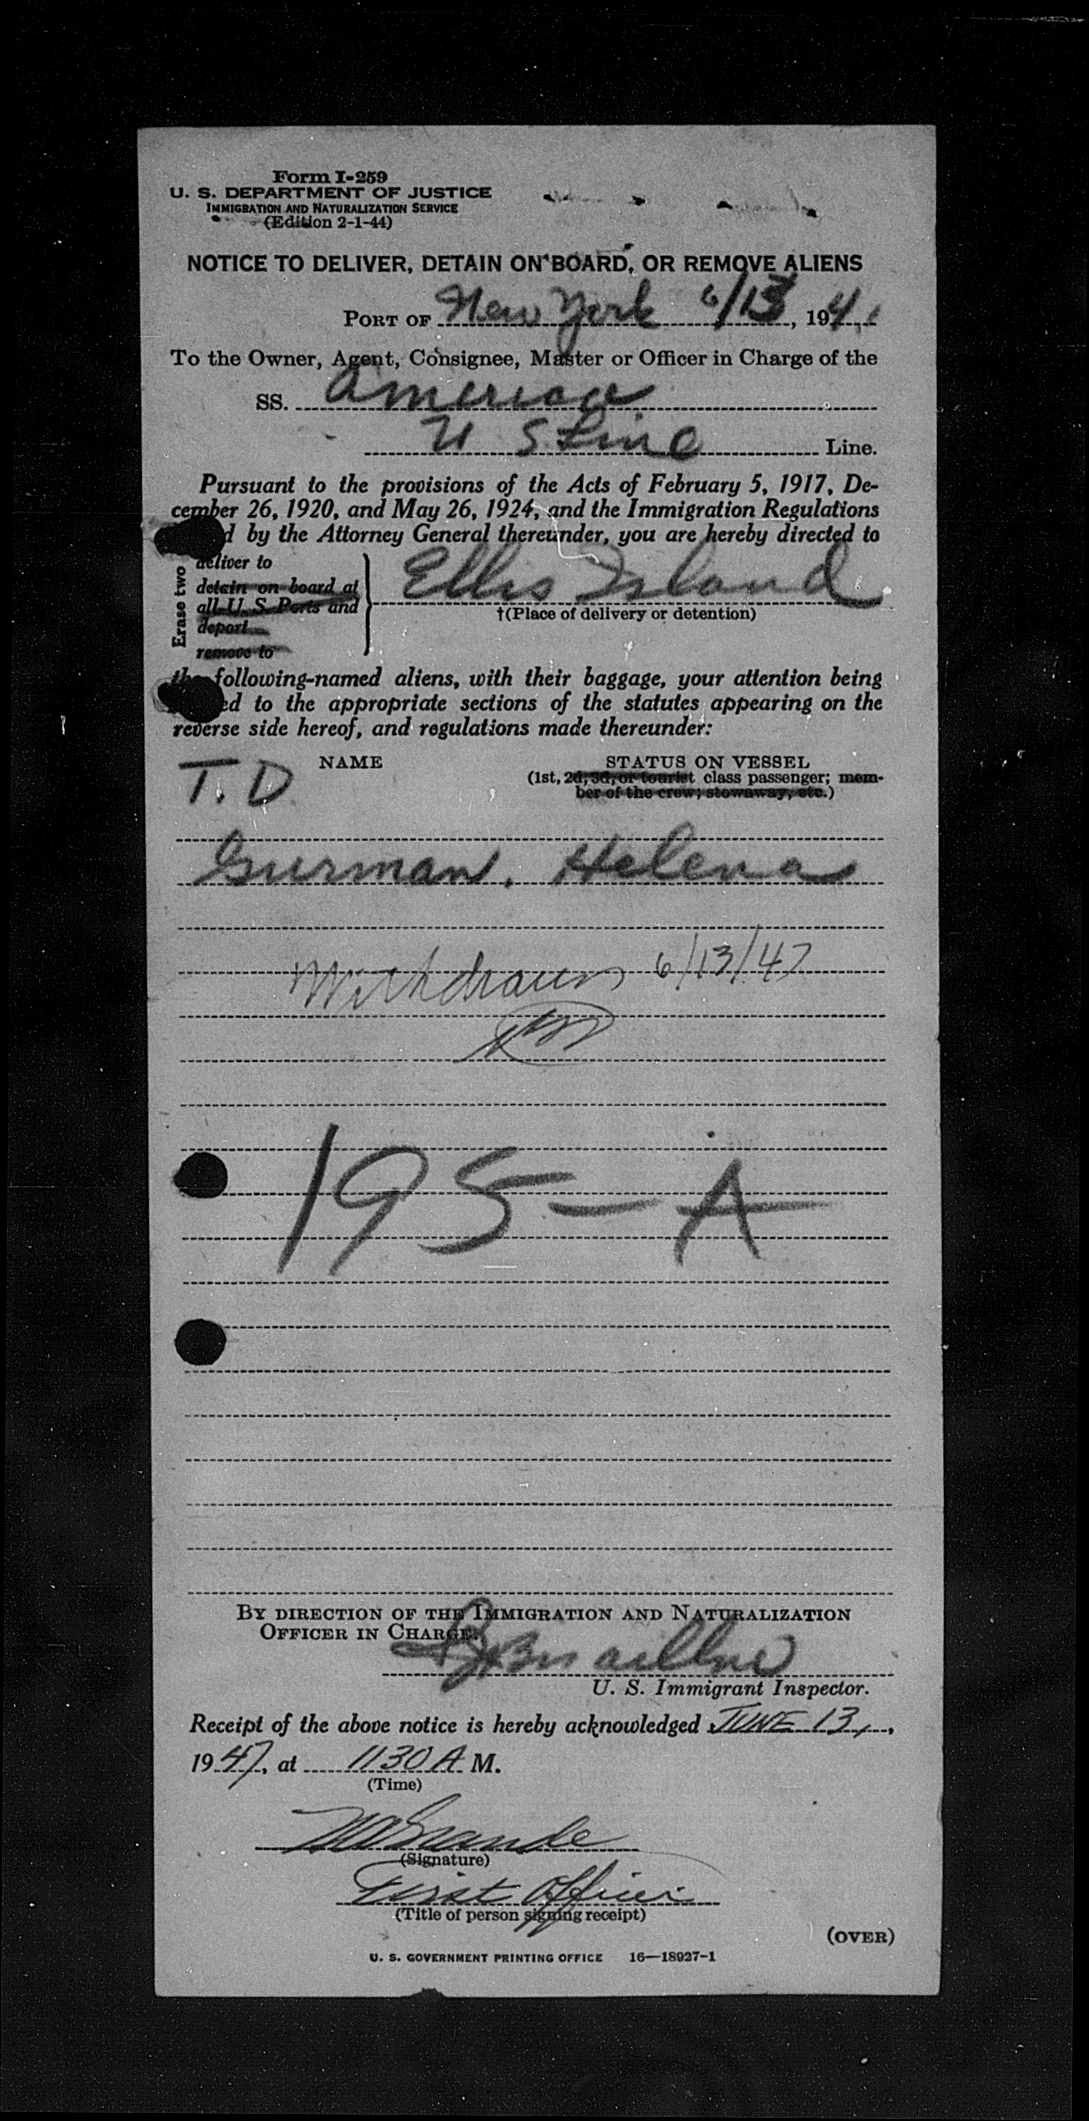 Form I-259
U. S. DEPARTMENT OF JUSTICE
IMMIGRATION AND NATURALIZATION SERVICE
(Edition 2-1-44)
NOTICE TO DELIVER, DETAIN ON BOARD, OR REMOVE ALIENS
PORT OF New York 6/13, 194
To the Owner, Agent, Consignee, Master or Officer in Charge of the
SS. America
U S Line Line.
Pursuant to the provisions of the Acts of February 5, 1917, De-
cember 26, 1920, and May 26, 1924, and the Immigration Regulations
by the Attorney General thereunder, you are hereby directed to
Erase two
deliver to
detain on board at
all U. S. Ports and
deport
remove to
Ellis Island
†(Place of delivery or detention)
the following-named aliens, with their baggage, your attention being
to the appropriate sections of the statutes appearing on the
reverse side hereof, and regulations made thereunder:
T. D. NAME STATUS ON VESSEL
(1st, 2d, 3d, or tourist class passenger; mem-
ber of the crew; stowaway, etc.)
Gurman, Helena
Withdrawn 6/13/47
195-A
BY DIRECTION OF THE IMMIGRATION AND NATURALIZATION
OFFICER IN CHARGE.
U. S. Immigrant Inspector.
Receipt of the above notice is hereby acknowledged JUNE 13,
1947, at 1130 A M.
(Time)
(Signature)
First Officer
(Title of person signing receipt)
(OVER)
U. S. GOVERNMENT PRINTING OFFICE 16—18927-1